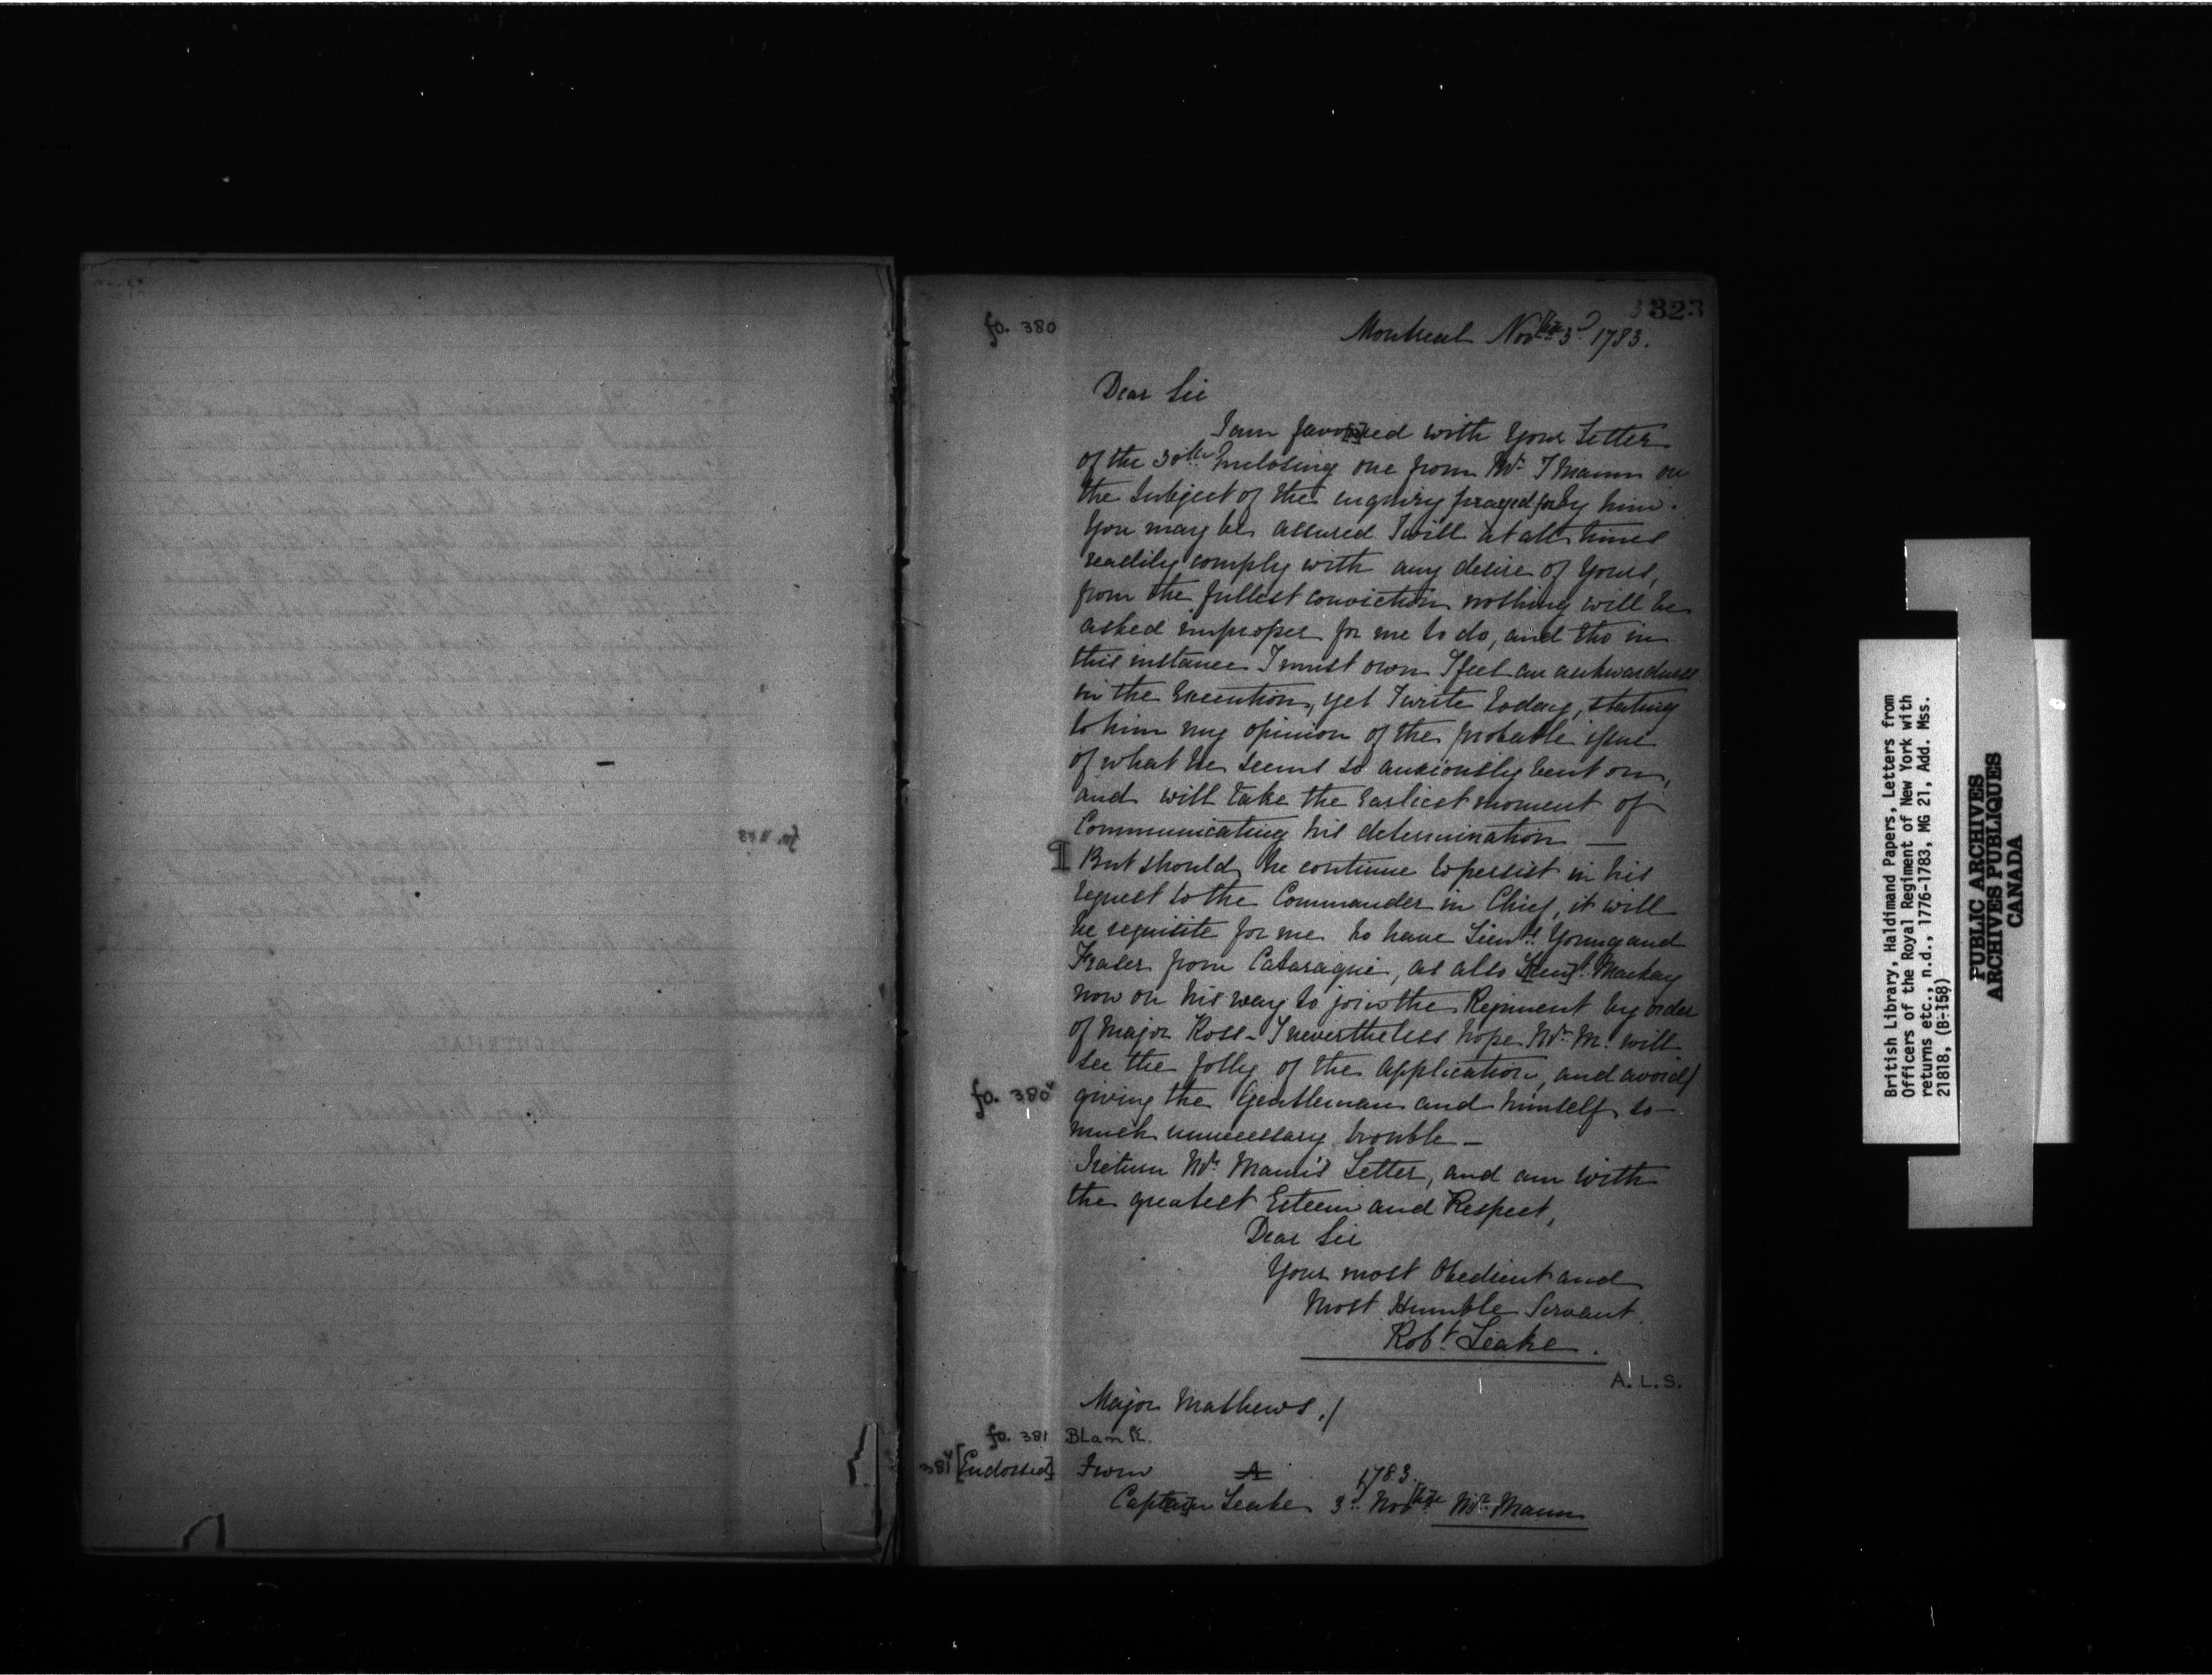 323
fo. 380
Montreal Novbr 3d 1783.
Dear Sir
I am favored with Your Letter
of the 30th Enclosing one from Mr. T Mann on
the Subject of the enquiry prayed for by him.
You may be assured I will at all times
readily comply with any desire of Yours,
from the fullest conviction nothing will be
asked improper for me to do, and tho in
this instance I must own I feel an aukwardness
in the Execution, yet I write today, stating
to him my opinion of the probable issue
of what He seems so anxiously bent on,
and will take the Earliest moment of
Communicating his determination —
¶ But should he continue to persist in his
request to the Commander in Chief, it will
be requisite for me to have Lieuts. Young and
Fraser from Cataraqui, as also Mackay
now on his way to join the Regiment by order
of Major Ross - I nevertheless hope Mr. M. will
see the folly of the Application, and avoid
fo. 380v giving the Gentleman and himself so
much unnecessary trouble —
I return Mr. Mann's Letter, and am with
the greatest Esteem and Respect,
Dear Sir
Your most Obedient and
Most Humble Servant
Robt. Leake.
A. L. S.
Major Mathews./
fo. 381 Blank.
381v [Endorsed] From A 1783.
Captain Leake 3d. Novbr Mr. Mann
British Library, Haldimand Papers, Letters from
Officers of the Royal Regiment of New York with
returns etc., n.d., 1776-1783, MG 21, Add. Mss.
21818, (B-158)
PUBLIC ARCHIVES
ARCHIVES PUBLIQUES
CANADA